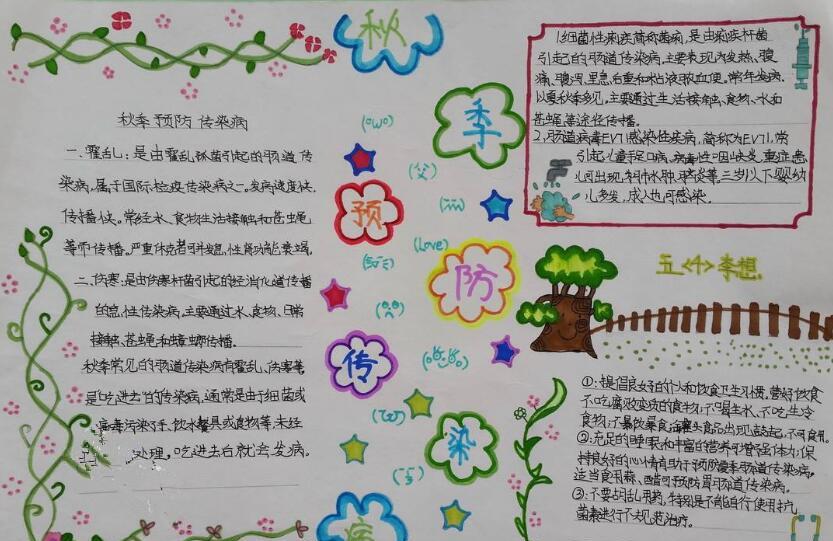 秋
季
预
防
传
染
病
秋季预防传染病
一、霍乱:是由霍乱弧菌引起的肠道传
染病,属于国际检疫传染病之一。发病速度快、
传播快。常经水、食物生活接触和苍蝇
等而传播。严重休克者可并发急性肾功能衰竭。
二、伤寒:是由伤寒杆菌引起的经消化道传播
的急性传染病,主要通过水、食物、日常
接触、苍蝇和蟑螂传播.
秋季常见的肠道传染病有霍乱、伤寒等
是"吃进去"的传染病,通常是由于细菌或
病毒污染了手、饮水餐具或食物等,未经
处理,吃进去后就会发病。
1.细菌性痢疾简称菌痢,是由痢疾杆菌
引起的肠道传染病,主要表现为发热、腹
痛、腹泻、里急后重和粘液脓血便。常年发病,
以夏秋季多见。主要通过生活接触、食物、水和
苍蝇等途径传播。
2.肠道病毒EV71感染性疾病,简称为EV71,常
引起儿童手足口病、病毒性咽峡炎,重症患
儿可出现,肺水肿、脑炎等,三岁以下婴幼
儿多发,成人也可感染.
五<4>李想.
①:提倡良好的个人和饮食卫生习惯。管好饮食
不吃腐败变质的食物;不喝生水、不吃生冷
食物;不暴饮暴食;罐头食品出现鼓起,不可食用。
②:充足的睡眠和丰富的营养可增强体力,保
持良好的心情有助于预防夏季肠道传染病。
适当食用蒜、醋可预防胃肠道传染病。
③:不要胡乱用药,特别是不能自行使用抗
菌素进行不规范治疗。
(OWO)
(Love)